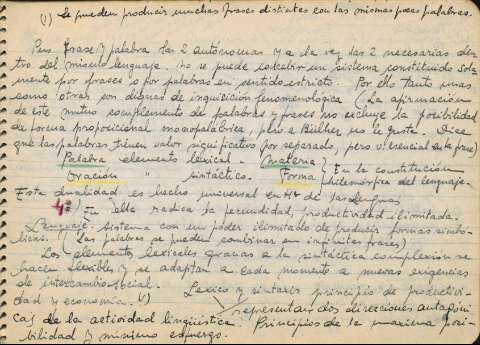 (1) Se pueden producir muchas frases distintas con las mismas pocas palabras.
Pero frase y palabra las 2 autónomas y a la vez las 2 necesarias den-
tro del mismo lenguaje. No se puede concebir un sistema constituido sola-
mente por frases o por palabras en sentido estricto. Por ello tanto unas
como otras son dignas de inquisición fenomenológica (La afirmación
de este mutuo complemento de palabras y frases no excluye la posibilidad
de forma proposicional monopalábrica, pero a Bülher no le gusta. Dice
que las palabras tienen valor significativo por separado, pero es esencial esta frase)
Palabra elemento lexical - Materia } En la constitución
Oración " sintáctico. Forma } hilemórfica del lenguaje.
Esta dualidad es hecho universal en de las lenguas
4º) En ella radica la fecundidad, productividad ilimitada.
Lenguaje: sistema con un poder ilimitado de producir formas simbó-
licas. (Las palabras se pueden combinar en infinitas frases)
Los elementos lexicales gracias a la sintáctica complexión se
hacen flexibles y se adaptan a cada momento a nuevas exigencias
de intercambio social. Lexico y sintaxis principio de productivi-
dad y economía. (1) representan dos direcciones antagóni-
cas de la actividad lingüística. Principios de la máxima posi-
bilidad y mínimo esfuerzo.